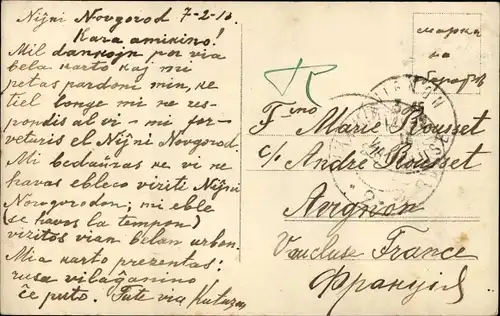 Niĵni Novgorod 7-2-10
Kara amikino!
Mil dankojn por via
bela karto kaj mi
petas pardoni min, ke
tiel longe mi ne res-
pondis al vi - mi for-
veturis el Niĵni Novgorod.
Mi bedaŭras ke vi ne
havas eblecon viziti Niĵni
Novogorodon; mi eble
(se havos la tempon)
vizitos vian belan urbon.
Mia karto prezentas:
rusa vilaĝanino
ĉe puto. Tute via
марка
на
F ino Marie Rousset
c/o André Rousset
Avignon
Vaucluse France
Франція